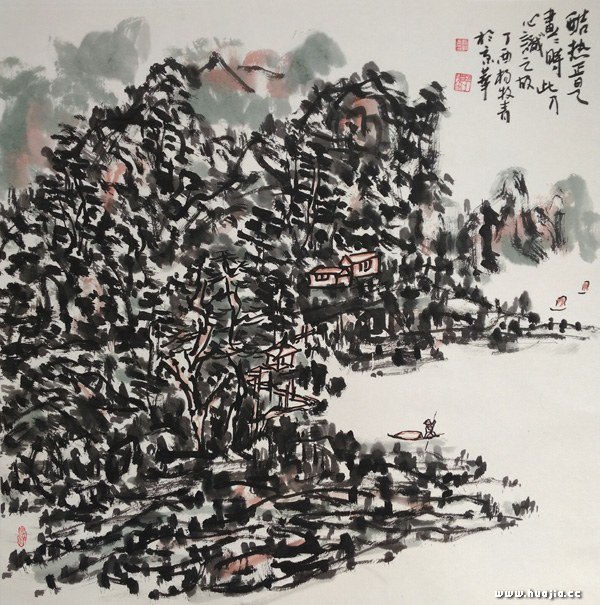 酷热正是
畫〻時此乃
心誠之故
丁酉杨牧青
於京華
www.huajia.cc